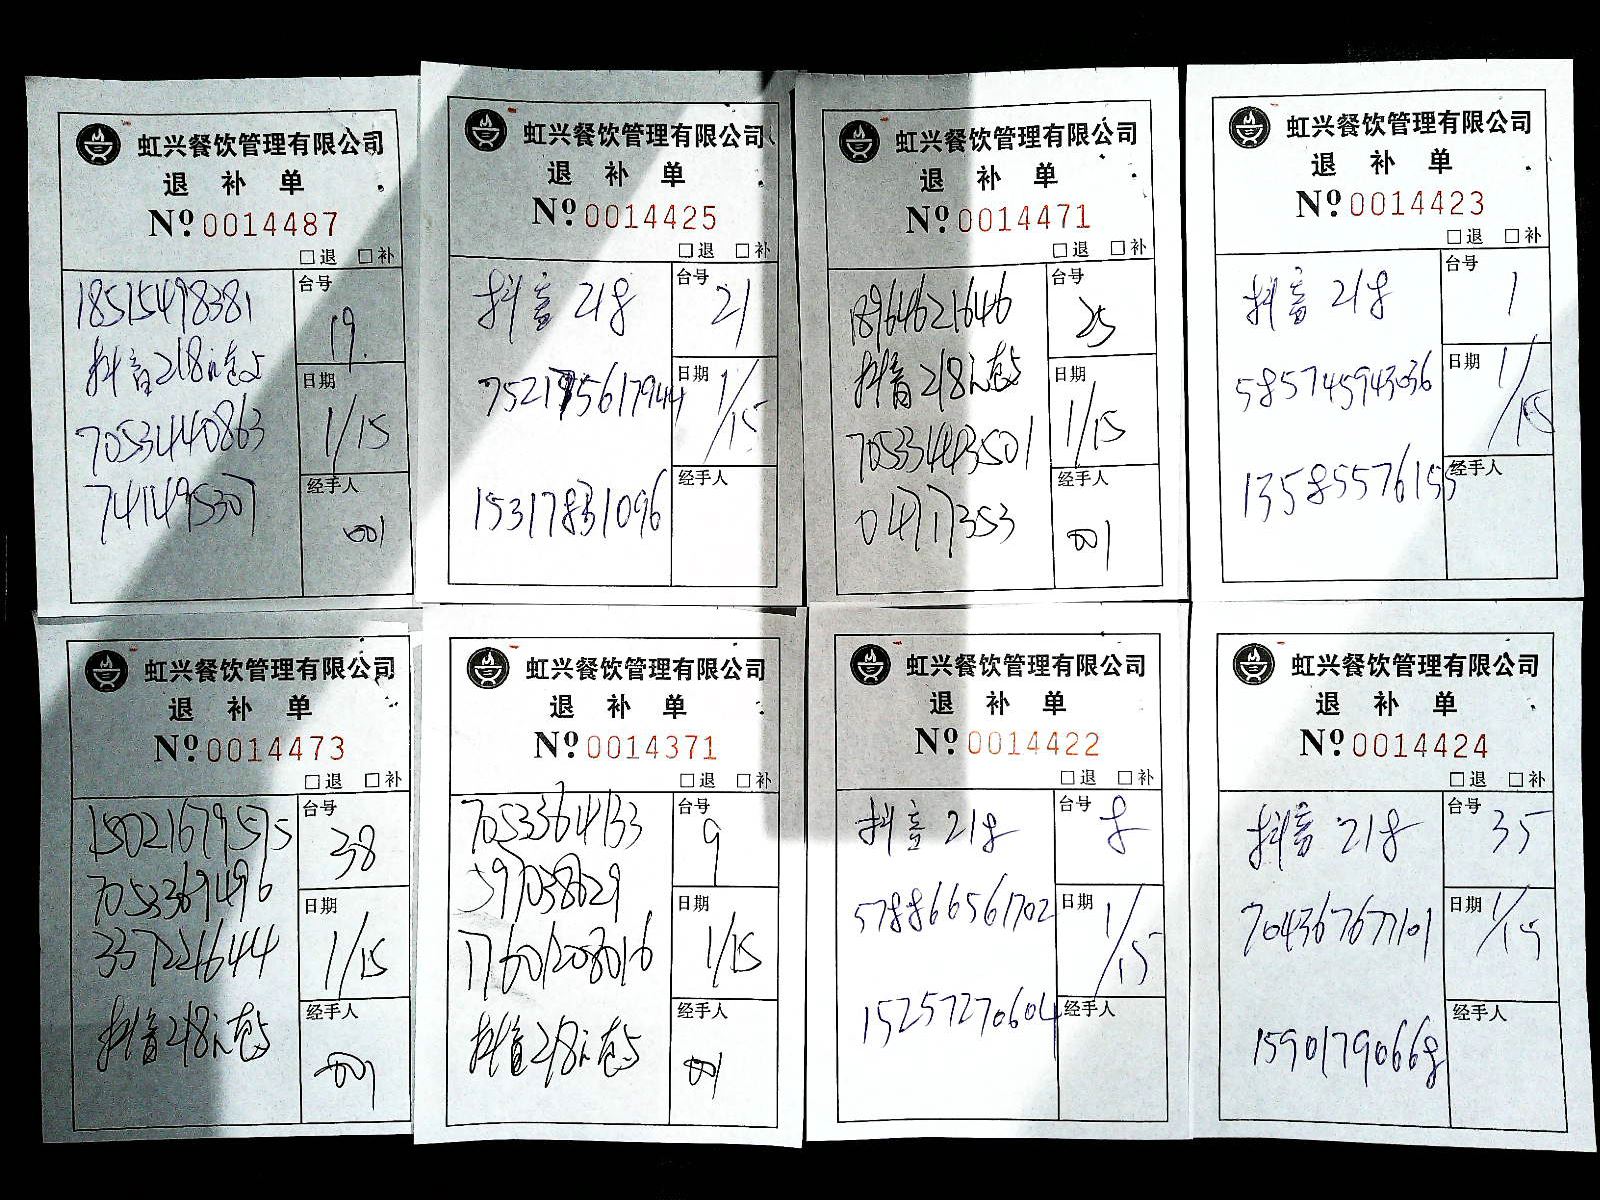 虹兴餐饮管理有限公司
退 补 单
Nº 0014487
□退 □补
18515498381
抖音218元套
70534440863
7414495307
台号
19.
日期
1/15
经手人
001
虹兴餐饮管理有限公司
退 补 单
Nº 0014425
□退 □补
抖音 218
15317831096
台号
21
日期
1/15
经手人
虹兴餐饮管理有限公司
退 补 单
Nº 0014471
□退 □补
18964621646
抖音218元套
70533443501
04717353
台号
25
日期
1/15
经手人
001
虹兴餐饮管理有限公司
退 补 单
Nº 0014423
□退 □补
抖音 218
585745943036
13585576155
台号
1
日期
1/15
经手人
虹兴餐饮管理有限公司
退 补 单
Nº 0014473
□退 □补
15021679575
7053369496
337224644
抖音218元套
台号
38
日期
1/15
经手人
001
虹兴餐饮管理有限公司
退 补 单
Nº 0014371
□退 □补
7053364133
597038629
17601208016
抖音218元套
台号
9
日期
1/15
经手人
001
虹兴餐饮管理有限公司
退 补 单
Nº 0014422
□退 □补
抖音 218
578866561702
15257270604
台号
8
日期
1/15
经手人
虹兴餐饮管理有限公司
退 补 单
Nº 0014424
□退 □补
抖音 218
704367677101
15901790668
台号
35
日期
1/15
经手人